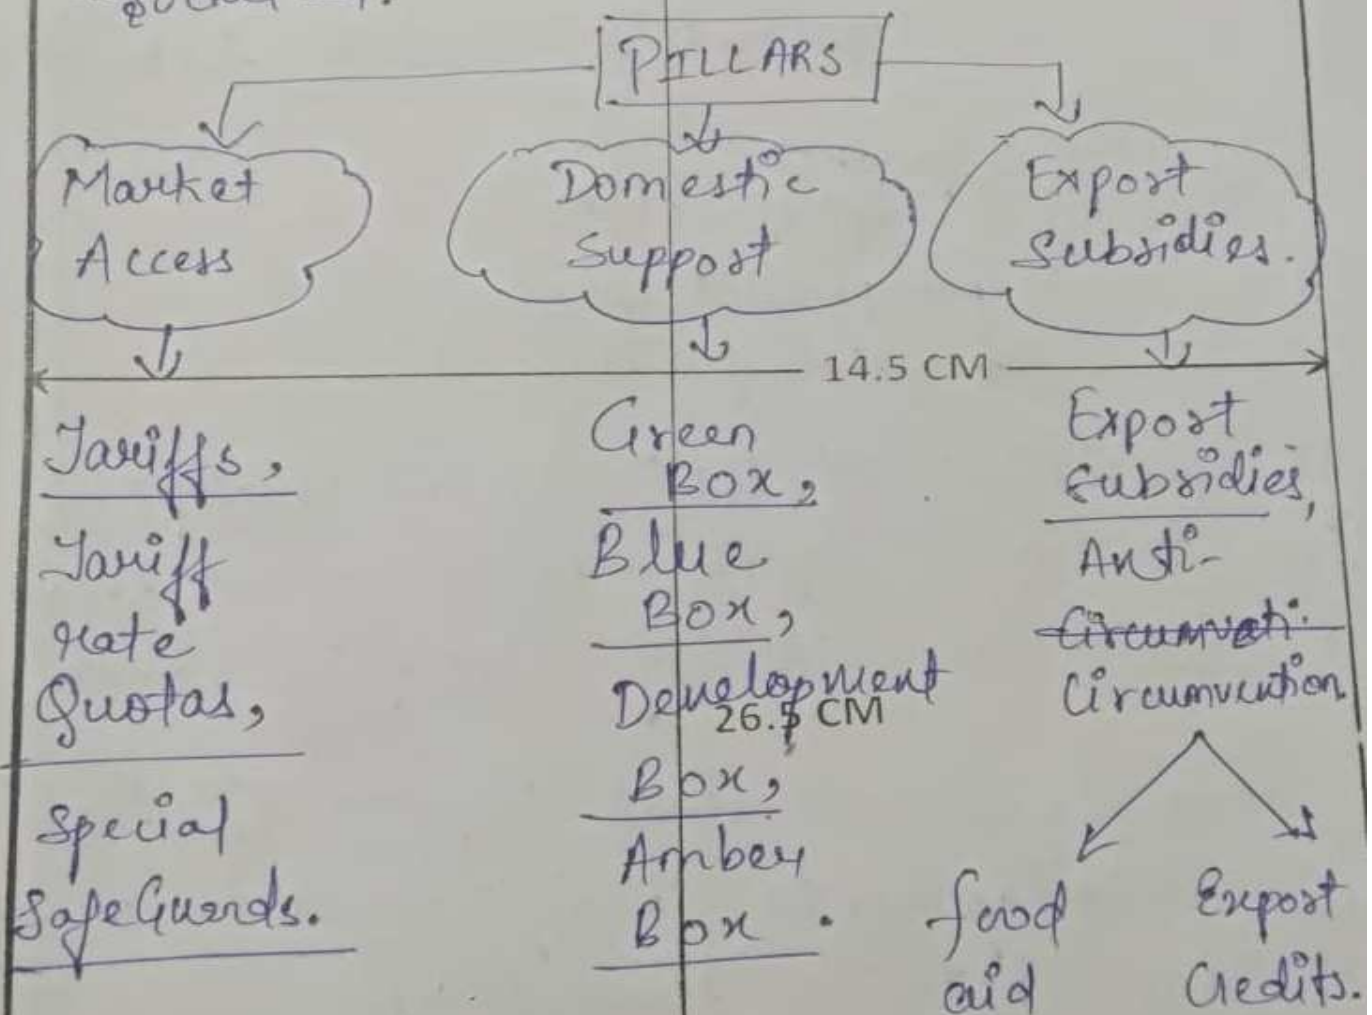 PILLARS
Market
Access
Domestic
Support
Export
Subsidies.
14.5 CM
Tariffs,
Tariff
rate
Quotas,
Special
SafeGuards.
Green
Box,
Blue
Box,
Development
26.5 CM
Box,
Amber
Box.
Export
Subsidies,
Anti-
Circumvention
food
aid
Export
Credits.